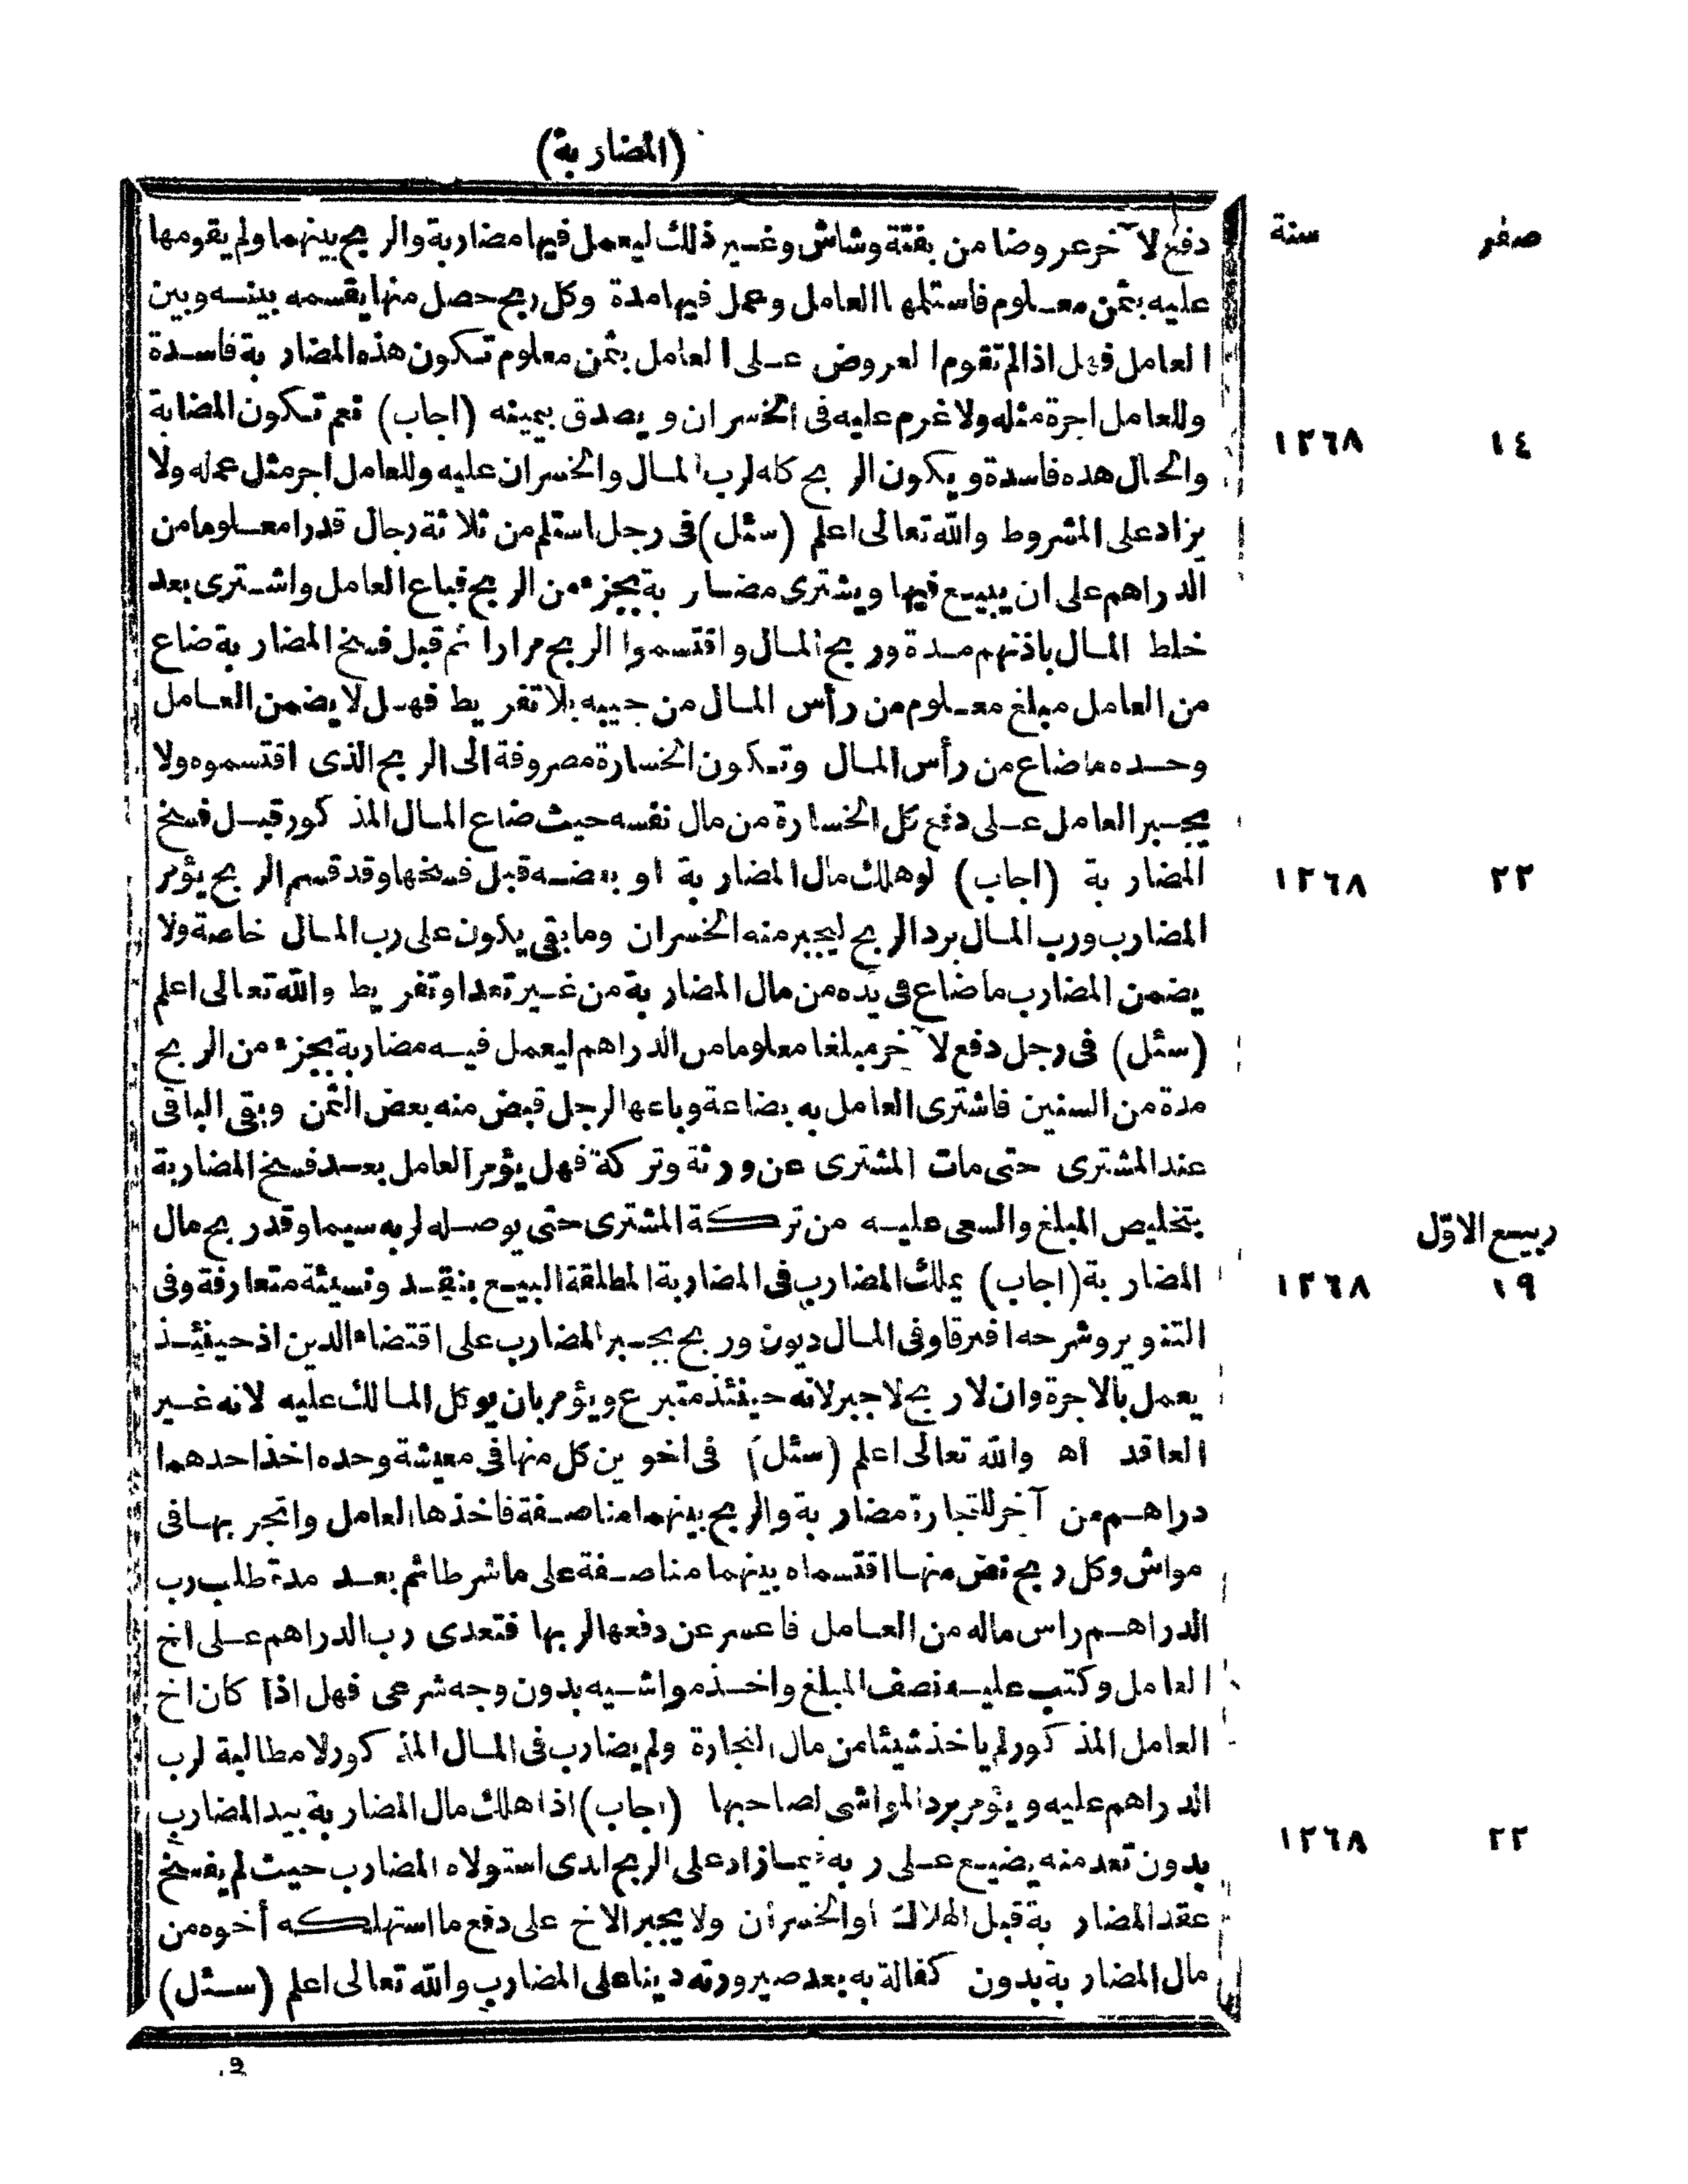 (المضاربة)
صفر سنة
دفع لآخر عروضا من بفتة وشاش وغير ذلك ليعمل فيها مضاربة والربح بينهما ولم يقومها
عليه بثمن معلوم فاستلمها العامل وعمل فيها مدة وكل ربح حصل منها يقسمه بينه وبين
العامل فهل اذا لم تقوم العروض على العامل بثمن معلوم تكون هذه المضاربة فاسدة
وللعامل اجرة مثله ولا غرم عليه فى الخسران ويصدق بيمينه (اجاب) نعم تكون المضابة
١٤ ١٢٦٨
والحال هذه فاسدة ويكون الربح كله لرب المال والخسران عليه وللعامل اجر مثل عمله ولا
يزاد على المشروط والله تعالى اعلم (سئل) فى رجل استلم من ثلاثة رجال قدرا معلوما من
الدراهم على ان يبيع فيها ويشترى مضاربة بجزء من الربح فباع العامل واشترى بعد
خلط المال باذنهم مدة وربح المال واقتسموا الربح مرارا ثم قبل فسخ المضاربة ضاع
من العامل مبلغ معلوم من رأس المال من جيبه بلا تفريط فهل لا يضمن العامل
وحده ما ضاع من رأس المال وتكون الخسارة مصروفة الى الربح الذى اقتسموه ولا
يجبر العامل على دفع كل الخسارة من مال نفسه حيث ضاع المال المذكور قبل فسخ
المضاربة (اجاب) لو هلك مال المضاربة او بعضه قبل فسخها وقد قسم الربح يؤمر
٢٢ ١٢٦٨
المضارب ورب المال برد الربح ليجبر منه الخسران وما بقى يكون على رب المال خاصة ولا
يضمن المضارب ما ضاع فى يده من مال المضاربة من غير تعد او تفريط والله تعالى اعلم
(سئل) فى رجل دفع لآخر مبلغا معلوما من الدراهم ليعمل فيه مضاربة بجزء من الربح
مدة من السنين فاشترى العامل به بضاعة وباعها لرجل قبض منه بعض الثمن وبقى الباقى
عند المشترى حتى مات المشترى عن ورثة وتركة فهل يؤمر العامل بعد فسخ المضاربة
بتخليص المبلغ والسعى عليه من تركة المشترى حتى يوصله لربه سيما وقد ربح مال
ربيع الاوّل
المضاربة (اجاب) يملك المضارب فى المضاربة المطلقة البيع بنقد ونسيئة متعارفة وفى
١٩ ١٢٦٨
التنوير وشرحه افترقا وفى المال ديون وربح يجبر المضارب على اقتضاء الدين اذ حينئذ
يعمل بالاجرة وان لا ربح لا جبر لانه حينئذ متبرع ويؤمر بان يوكل المالك عليه لانه غير
العاقد اه والله تعالى اعلم (سئل) فى اخوين كل منها فى معيشة وحده اخذ احدهما
دراهم من آخر للتجارة مضاربة والربح بينهما مناصفة فاخذها العامل واتجر بها فى
مواش وكل ربح نض منها اقتسماه بينهما مناصفة على ما شرطا ثم بعد مدة طلب رب
الدراهم راس ماله من العامل فاعسر عن دفعها لربها فتعدى رب الدراهم على اخ
العامل وكتب عليه نصف المبلغ واخذ مواشيه بدون وجه شرعى فهل اذا كان اخ
العامل المذكور لم ياخذ شيئا من مال التجارة ولم يضارب فى المال المذكور لا مطالبة لرب
الدراهم عليه ويؤمر برد المواشى لصاحبها (اجاب) اذا هلك مال المضاربة بيد المضارب
٢٢ ١٢٦٨
بدون تعد منه يضيع على ربه فيما زاد على الربح الذى استولاه المضارب حيث لم يفسخ
عقد المضاربة قبل الهلاك أو الخسران ولا يجبر الاخ على دفع ما استهلكه أخوه من
مال المضاربة بدون كفالة به بعد صيرورته دينا على المضارب والله تعالى اعلم (سئل)